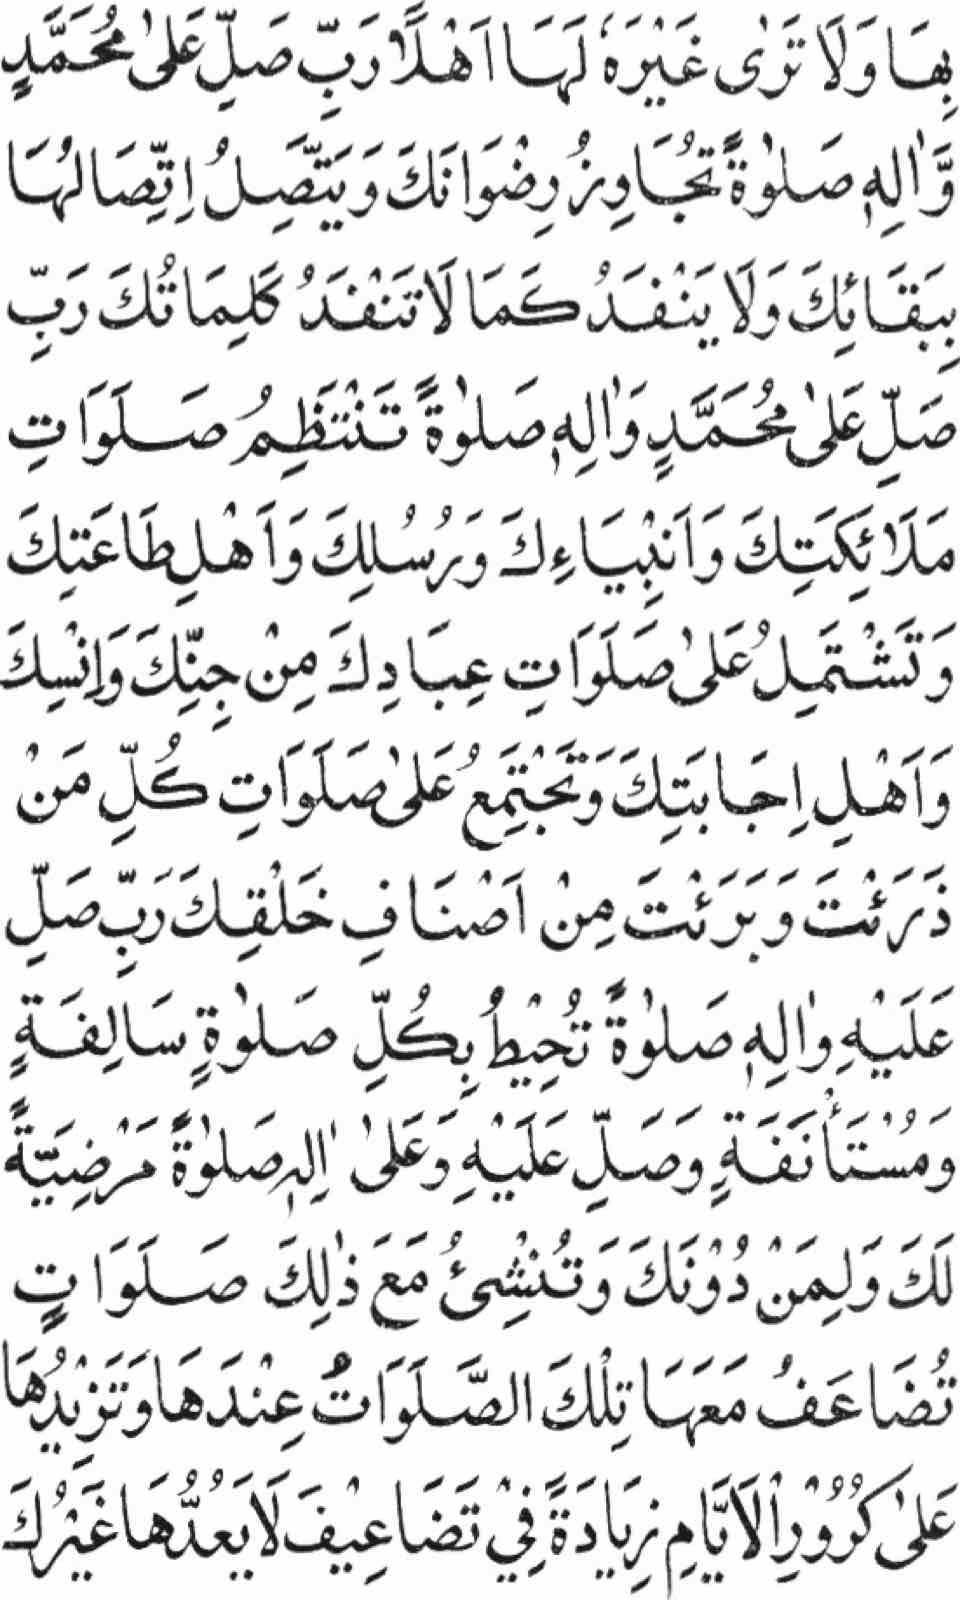 بِهَا وَلَا تَرٰى غَيْرَهٗ لَهَا اَهْلًا رَبِّ صَلِّ عَلٰى مُحَمَّدٍ
وَّاٰلِهٖ صَلٰوةً تُجَاوِزُ رِضْوَانَكَ وَيَتَّصِلُ اِتِّصَالُهَا
بِبَقَائِكَ وَلَا يَنْفَدُ كَمَا لَا تَنْفَدُ كَلِمَاتُكَ رَبِّ
صَلِّ عَلٰى مُحَمَّدٍ وَاٰلِهٖ صَلٰوةً تَنْتَظِمُ صَلَوَاتِ
مَلَائِكَتِكَ وَاَنْبِيَاءِكَ وَرُسُلِكَ وَاَهْلِ طَاعَتِكَ
وَتَشْتَمِلُ عَلٰى صَلَوَاتِ عِبَادِكَ مِنْ جِنِّكَ وَاِنْسِكَ
وَاَهْلِ اِجَابَتِكَ وَتَجْتَمِعُ عَلٰى صَلَوَاتِ كُلِّ مَنْ
ذَرَئْتَ وَبَرَئْتَ مِنْ اَصْنَافِ خَلْقِكَ رَبِّ صَلِّ
عَلَيْهِ وَاٰلِهٖ صَلٰوةً تُحِيْطُ بِكُلِّ صَلٰوةٍ سَالِفَةٍ
وَمُسْتَأْنَفَةٍ وَصَلِّ عَلَيْهِ وَعَلٰى اٰلِهٖ صَلٰوةً مَرْضِيَّةً
لَكَ وَلِمَنْ دُوْنَكَ وَتُنْشِئُ مَعَ ذٰلِكَ صَلَوَاتٍ
تُضَاعَفُ مَعَهَا تِلْكَ الصَّلَوَاتُ عِنْدَهَا وَتَزِيْدُهَا
عَلٰى كُرُوْرِ الْاَيَّامِ زِيَادَةً فِيْ تَضَاعِيْفَ لَا يَعُدُّهَا غَيْرُكَ